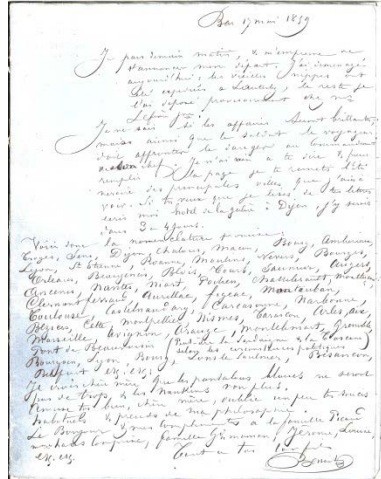 Bar 17 mai 1859
Je pars demain matin, & m'empresse de
t'annoncer mon départ. J'ai déménagé
aujourd'hui; les vieilles nippes ont
été expédiées à le reste je
l'ai déposé provisoirement chez Mr
Je ne sais si les affaires seront brillantes,
mais ainsi que le soldat le voyageur
doit affronter le danger au commandement
du chef. Je n'ai rien à te dire & pour
remplir la page je te remets l'iti
néraire des principales villes que j'ai à
voir. Si tu veux que je lise de tes lettres
écris moi hôtel de la galère à Dijon, j'y serai
dans 3 ou 4 jours.
Voici donc la nomenclature promise:
Troyes, Sens, Dijon, Chalons, Macon, Bourg, Ambérieu,
Lyon, St Etienne, Roanne, Moulins, Nevers, Bourges,
Orléans, Beaugency, Blois, Tours, Saumur, Angers,
Ancenis, Nantes, Niort, Poitiers, Chatellerault,
Clermont ferrand, Aurillac, Figeac, Montauban,
Toulouse, Castelnaudary, Carcassonne, Narbonne,
Béziers, Cette, Montpellier, Nimes, Tarascon, Arles, Aix,
Marseille, Avignon, Orange, Montélimart, Grenoble
Pont de Beauvoisin
selon les circonstances politiques
Bourgoin, Lyon, Bourg, Lons le Saulnier, Besançon,
Belfort etc. etc.
Je crois chère mère, que les pantalons blancs ne seront
pas de trop, & les Nankins non plus.
Amuse toi bien, chère mère, oublie un peu tes soucis
habituels & prends de ma philosophie.
Le Bonjour & mes compliments à la famille Picard
famille G. maman, Jérôme, Laure,
etc. etc.
Tout à toi